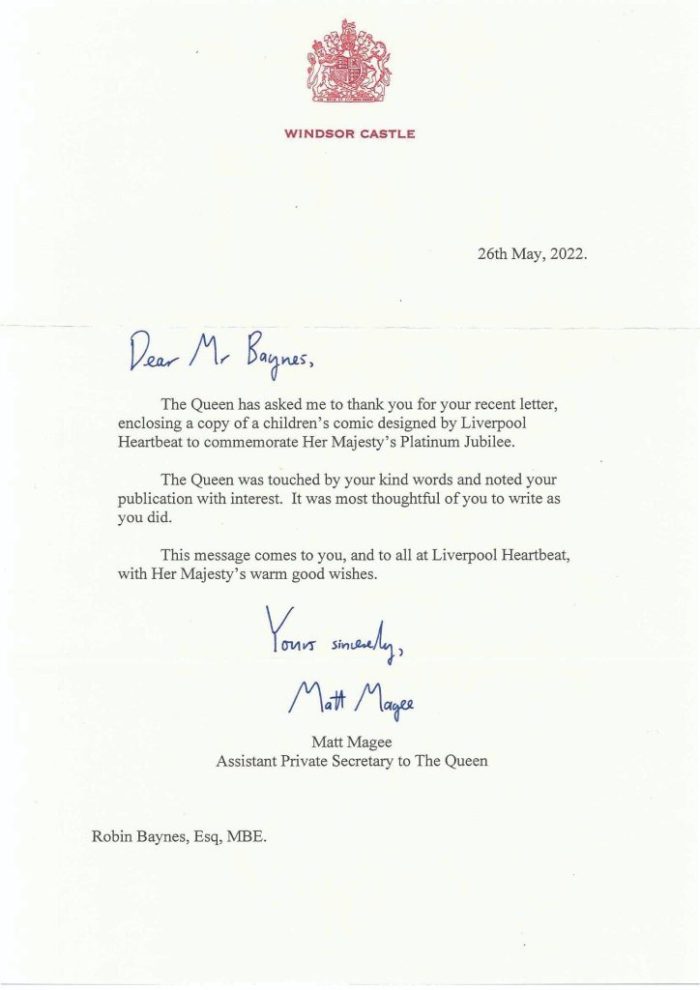 WINDSOR CASTLE
26th May, 2022.
Dear Mr Baynes,
The Queen has asked me to thank you for your recent letter,
enclosing a copy of a children's comic designed by Liverpool
Heartbeat to commemorate Her Majesty's Platinum Jubilee.
The Queen was touched by your kind words and noted your
publication with interest.  It was most thoughtful of you to write as
you did.
This message comes to you, and to all at Liverpool Heartbeat,
with Her Majesty's warm good wishes.
Yours sincerely,
Matt Magee
Matt Magee
Assistant Private Secretary to The Queen
Robin Baynes, Esq, MBE.